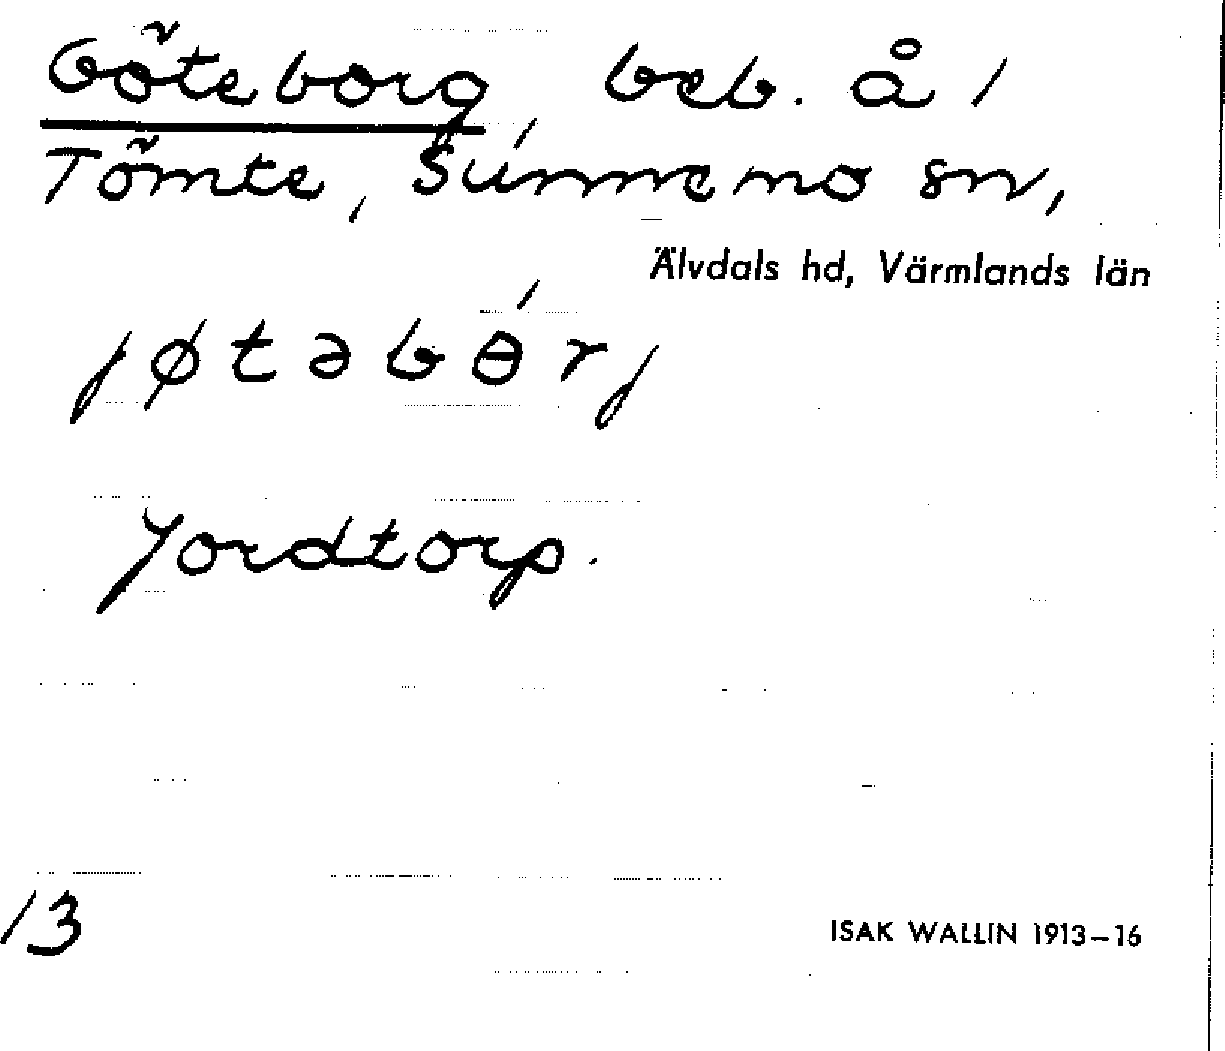 Göteborg, beb. å 1
Tömte, Sunnemo sn,
Älvdals hd, Värmlands län
jøtəbɵ́rj
Jordtorp.
13
ISAK WALLIN 1913–16